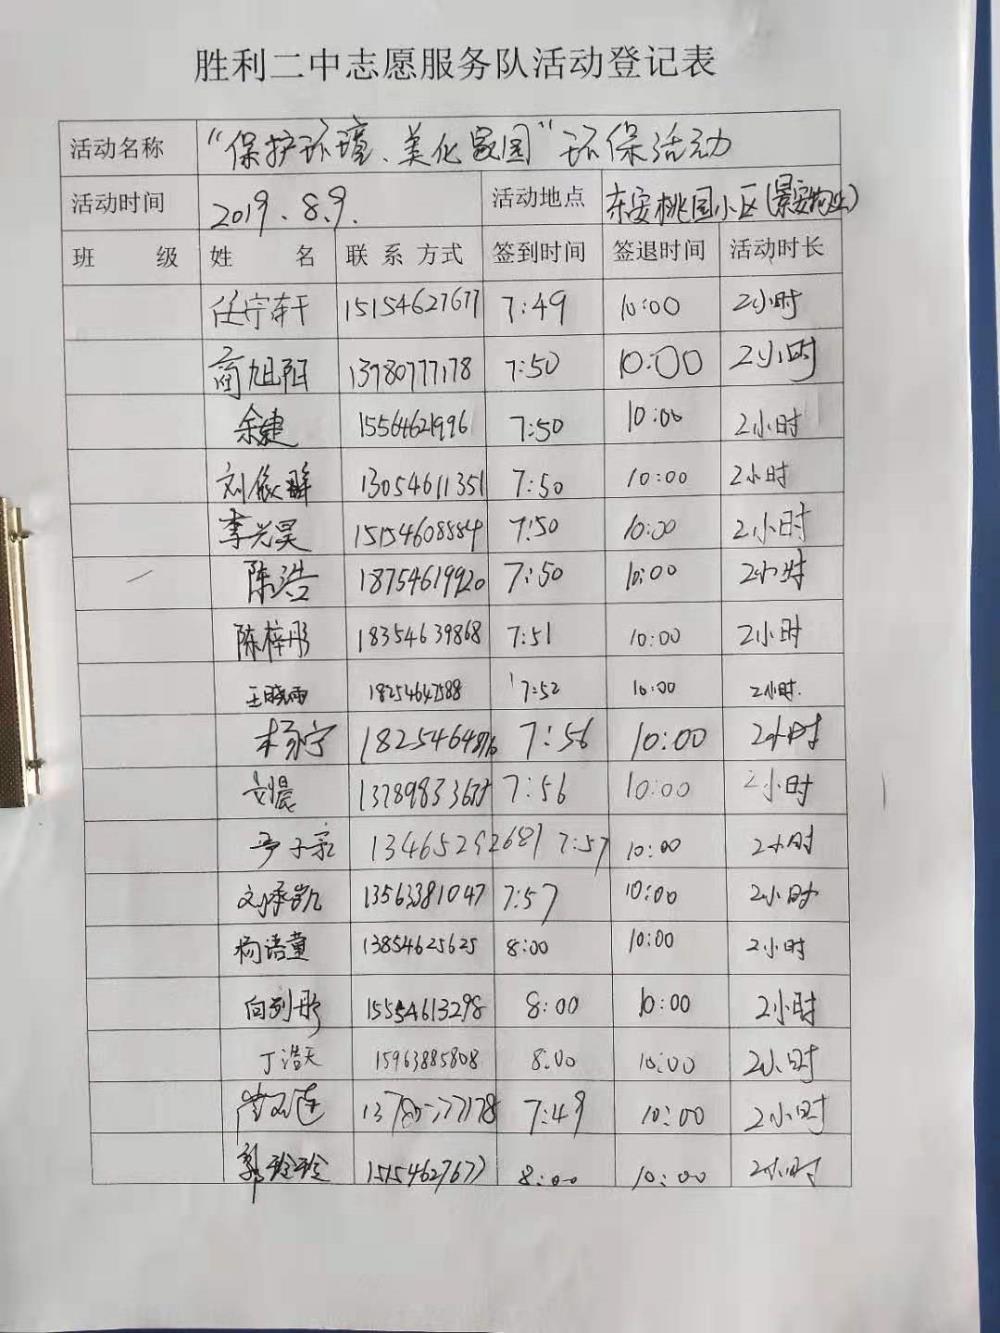 胜利二中志愿服务队活动登记表
活动名称 “保护环境、美化家园”环保活动
活动时间 2019.8.9. 活动地点 东安桃园小区(景安物业)
班 级 姓 名 联系方式 签到时间 签退时间 活动时长
任宁轩 15154627677 7:49 10:00 2小时
商旭阳 13780777178 7:50 10:00 2小时
余婕 15564621996 7:50 10:00 2小时
刘依 13054611351 7:50 10:00 2小时
李兴昊 15154608884 7:50 10:00 2小时
陈浩 18754619920 7:50 10:00 2小时
陈梓彤 18354639868 7:51 10:00 2小时
王晓雨 18254647588 7:52 10:00 2小时.
杨宁 7:56 10:00 2小时
刘晨 7:56 10:00 2小时
子 13465292681 7:57 10:00 2小时
刘承凯 13563381047 7:57 10:00 2小时
杨语童 13854625625 8:00 10:00 2小时
向列彤 15554613298 8:00 10:00 2小时
丁浩天 15963885808 8:00 10:00 2小时
13780777178 7:49 10:00 2小时
郭玲玲 15154627677 8:00 10:00 2小时